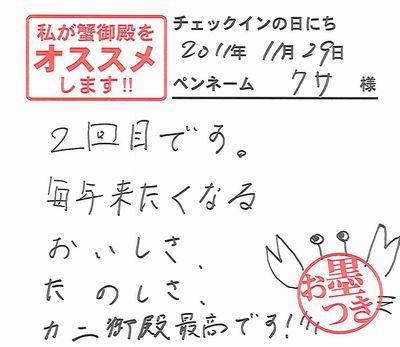 私が蟹御殿を
オススメ
します!!
チェックインの日にち
2011年 11月 29日
ペンネーム クサ 様
2回目です。
毎年来たくなる
おいしさ、
たのしさ、
カニ御殿最高です!!
お墨つき